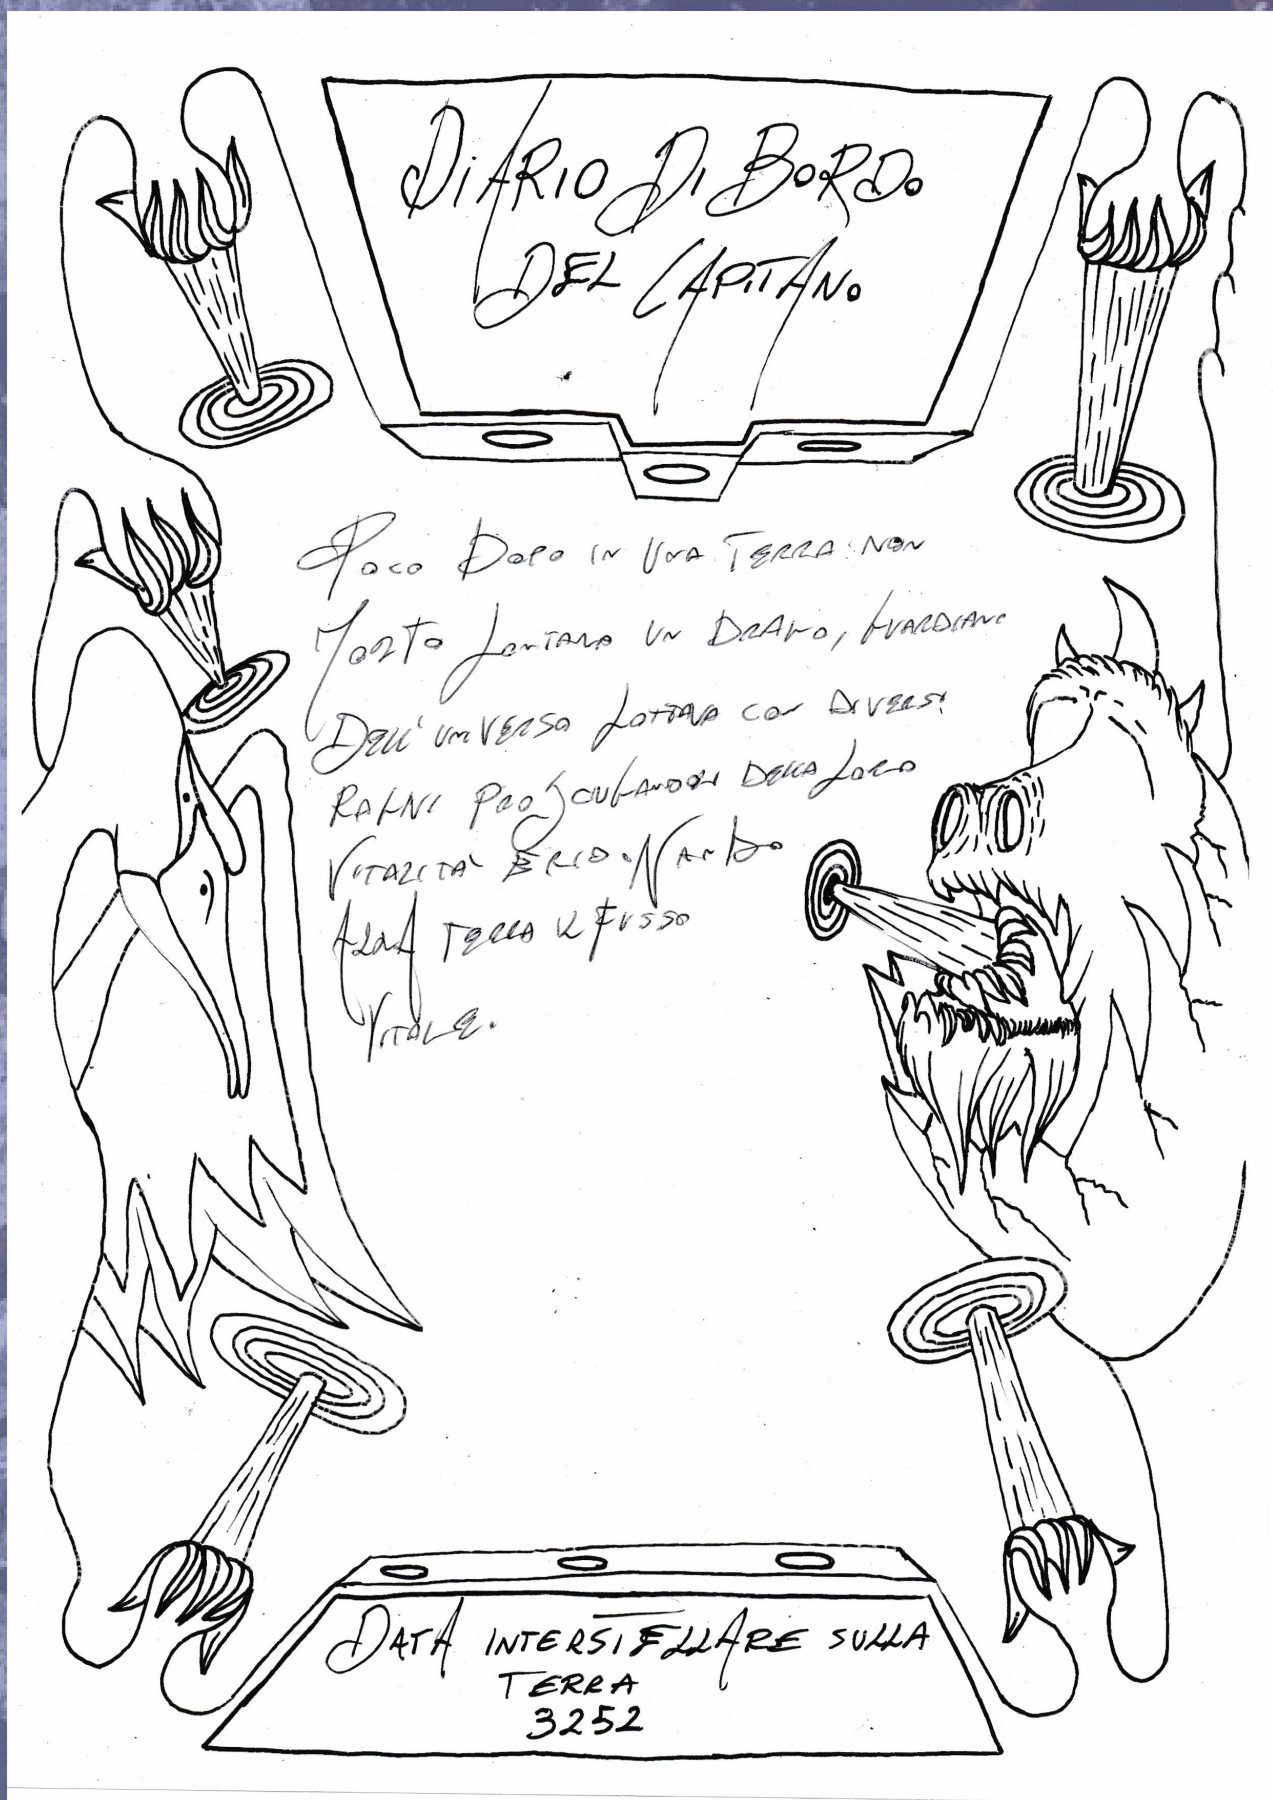 DIARIO DI BORDO
DEL CAPITANO
POCO DOPO IN UNA TERRA NON
MOLTO LONTANA UN DRAGO, GUARDIANO
DELL'UNIVERSO LOTTAVA CON DIVERSI
RAGNI PROSCIUGANDOLI DELLA LORO
VITALITÀ
ALLA TERRA IL FLUSSO
VITALE.
DATA INTERSTELLARE SULLA
TERRA
3252